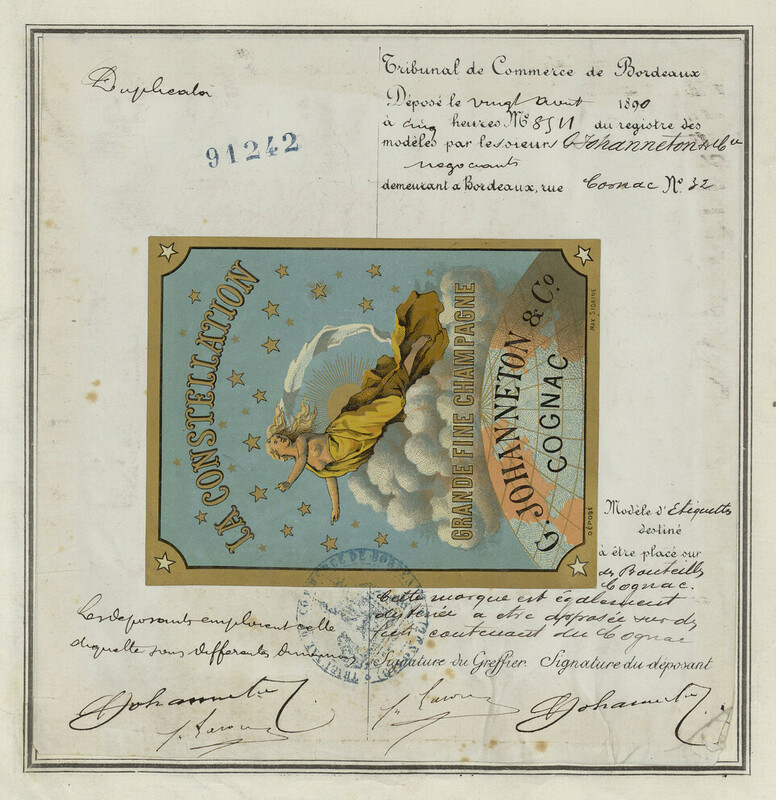 Duplicata
91242
Tribunal de Commerce de Bordeaux
Déposé le vingt août 1890
à cinq heures Nº 8511 du registre des
modèles par les sieurs G Johanneton & Cie
négociants
demeurant à Bordeaux, rue Cornac Nº 32
LA CONSTELLATION
GRANDE FINE CHAMPAGNE
G. JOHANNETON & Cº.
COGNAC
MAX SIDAINE
DÉPOSÉ
Modèle d'Etiquettes
destiné
à être placé sur
des Bouteilles
Cognac.
Cette marque est également
destinée a etre apposée sur des
futs contenant du Cognac
Les deposants emploient cette
étiquette sous differentes dimensions
TRIBUNAL DE COMMERCE DE BORDEAUX
(GIRONDE)
Signature du Greffier. Signature du déposant
GJohanneton
GJohanneton